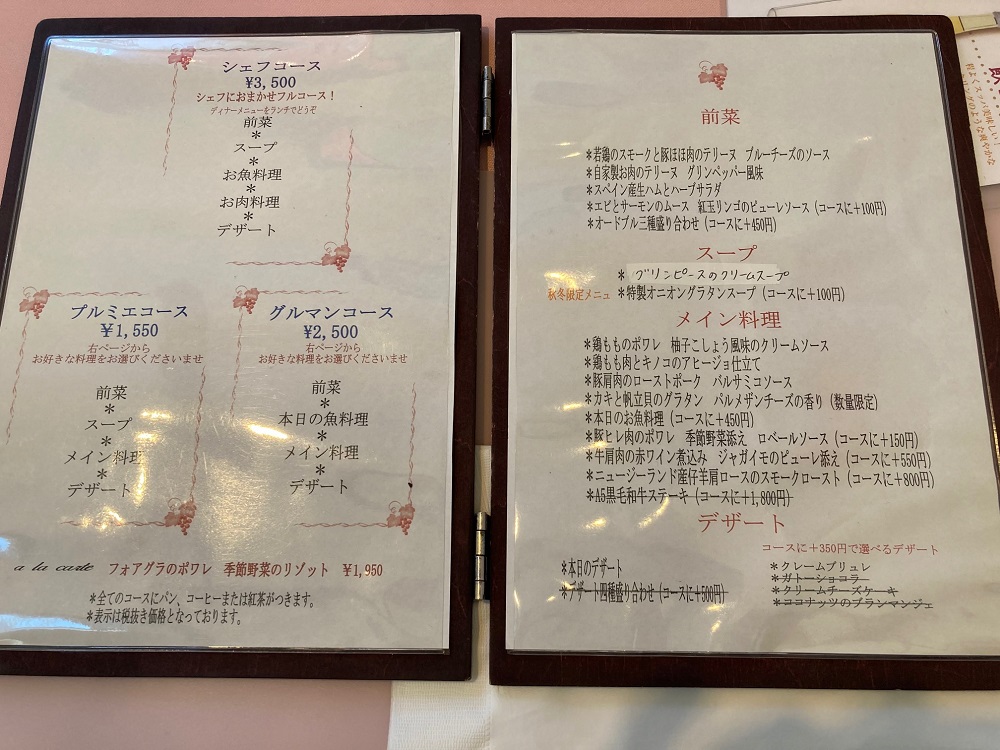 シェフコース
¥3,500
シェフにおまかせフルコース！
ディナーメニューをランチでどうぞ
前菜
＊
スープ
＊
お魚料理
＊
お肉料理
＊
デザート
プルミエコース
¥1,550
右ページから
お好きな料理をお選びくださいませ
前菜
＊
スープ
＊
メイン料理
＊
デザート
グルマンコース
¥2,500
右ページから
お好きな料理をお選びくださいませ
前菜
＊
本日の魚料理
＊
メイン料理
＊
デザート
a la carte フォアグラのポワレ 季節野菜のリゾット ¥1,950
＊全てのコースにパン、コーヒーまたは紅茶がつきます。
＊表示は税抜き価格となっております。
前菜
＊若鶏のスモークと豚ほほ肉のテリーヌ ブルーチーズのソース
＊自家製お肉のテリーヌ グリンペッパー風味
＊スペイン産生ハムとハーブサラダ
＊エビとサーモンのムース 紅玉リンゴのピューレソース（コースに＋100円）
＊オードブル三種盛り合わせ（コースに＋450円）
スープ
＊ グリンピースのクリームスープ
秋冬限定メニュー ＊特製オニオングラタンスープ（コースに＋100円）
メイン料理
＊鶏もものポワレ 柚子こしょう風味のクリームソース
＊鶏もも肉とキノコのアヒージョ仕立て
＊豚肩肉のローストポーク バルサミコソース
＊カキと帆立貝のグラタン パルメザンチーズの香り（数量限定）
＊本日のお魚料理（コースに＋450円）
＊豚ヒレ肉のポワレ 季節野菜添え ロベールソース（コースに＋150円）
＊牛肩肉の赤ワイン煮込み ジャガイモのピューレ添え（コースに＋550円）
＊ニュージーランド産仔羊肩ロースのスモークロースト（コースに＋800円）
＊A5黒毛和牛ステーキ（コースに＋1,800円）
デザート
＊本日のデザート
＊デザート四種盛り合わせ（コースに＋500円）
コースに＋350円で選べるデザート
＊クレームブリュレ
＊ガトーショコラ
＊クリームチーズケーキ
＊ココナッツのブランマンジェ